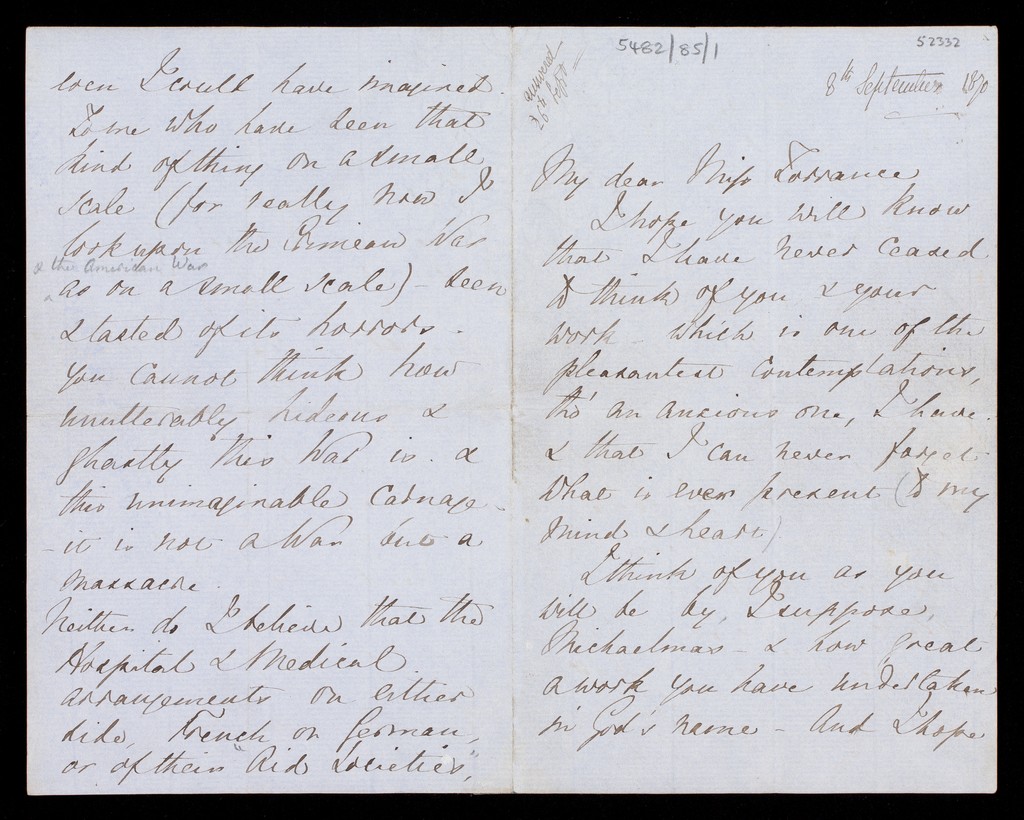 5482/85/1
52332
answered
26 Septr
8th September 1870
My dear Miss Torrance
I hope you will know
that I have never ceased
to think of you & your
work - which is one of the
pleasantest contemplations,
tho' an anxious one, I have.
& that I can never forget
what is ever present (to my
mind & heart)
I think of you as you
will be by, I suppose,
Michaelmas - & how great
a work you have undertaken
in God's name - And I hope
even I could have imagined.
To me who have seen that
kind of thing on a small
scale (for really now I
look upon the Crimean War
& the American War
as on a small scale) - seen
& tasted of its horrors -
you cannot think how
unutterably hideous &
ghastly this War is. &
this unimaginable carnage -
- it is not a War but a
massacre.
Neither do I believe that the
Hospital & Medical
arrangements on either
side, French or German,
or of their "Aid Societies",